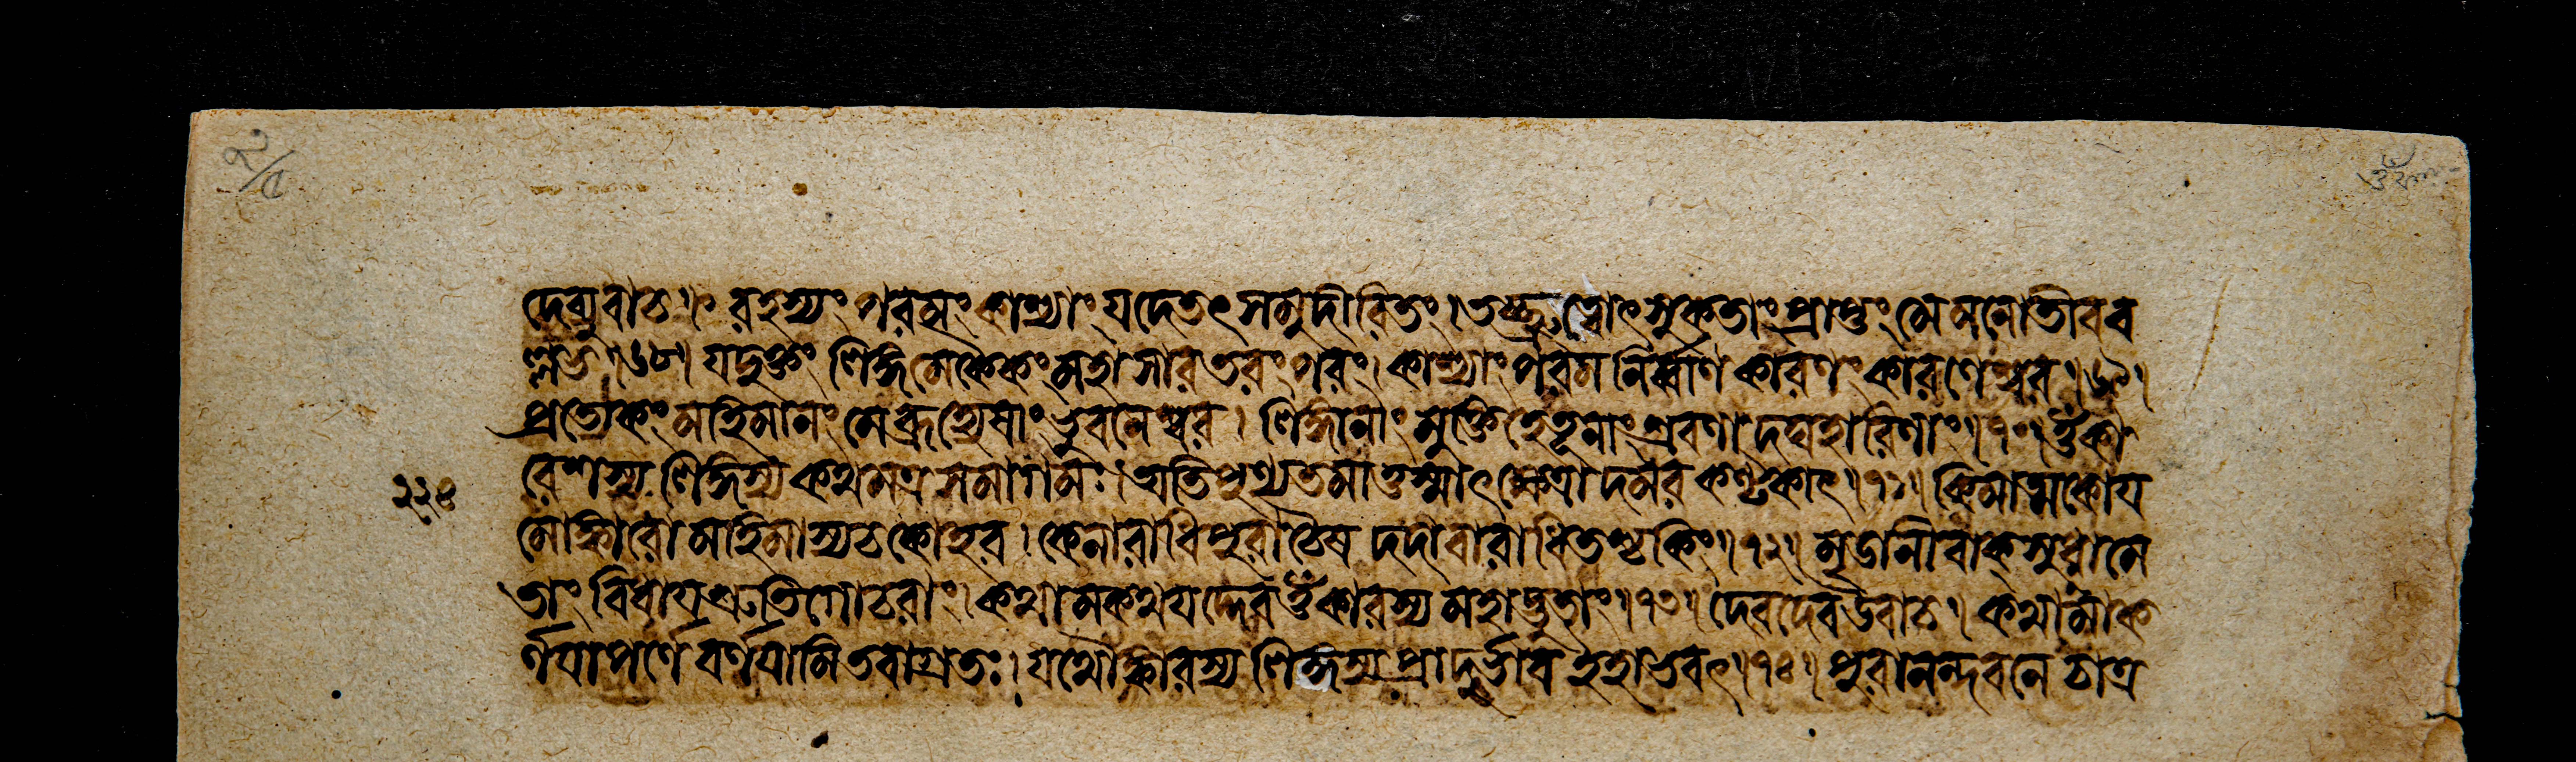 ২/৫
দেব্যুবাচ। রহস্যং পরমং কাশ্যাং যদেতৎ সমুদীরিতং। তচ্ছ্রুত্বোৎসুকতাং প্রাপ্তং মে মনোতীবব
ল্লভ।৬৮। যদুক্তং লিঙ্গমেকৈকং মহাসারতরং পরং। কাশ্যাং পরমনির্ব্বাণকারণং কারণেশ্বর।৬৯।
প্রত্যেকং মহিমানং মে ব্রূহ্যেষাং ভুবনেশ্বর। লিঙ্গানাং মুক্তিহেতূনাং শ্রবণাদঘহারিণাং।৭০। ওঁকা
২২৪ রেশস্য লিঙ্গস্য কথমত্র সমাগমঃ। অতিপুণ্যতমাত্তস্মাৎ ক্ষেত্রাদমরকণ্টকাৎ।৭১। কিমাত্মকোয
মোঙ্কারো মহিমাস্য চ কোহর। কেনারাধি পুরা চৈষ দদাবারাধিতশ্চ কিং।৭২। মৃডানীবাক্সুধামে
তাং বিধায শ্রুতিগোচরাং। কথামকথযদ্দেব ওঁকারস্য মহাদ্ভুতাং।৭৩। দেবদেব উবাচ। কথামাক
র্ণযাপর্ণে বর্ণযামি তবাগ্রতঃ। যথোঙ্কারস্য লিঙ্গস্য প্রাদুর্ভাব ইহাভবৎ।৭৪। পুরানন্দবনে চাত্র